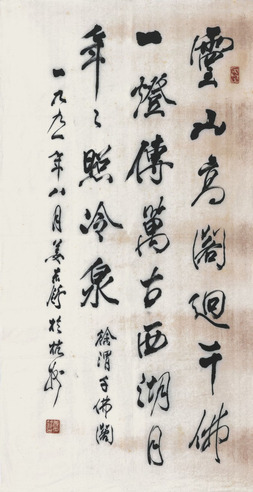 靈山高阁迴千佛
一燈傳萬古西湖月
年々照冷泉
徐渭千佛阁
一九九一年八月姜东舒於杭州